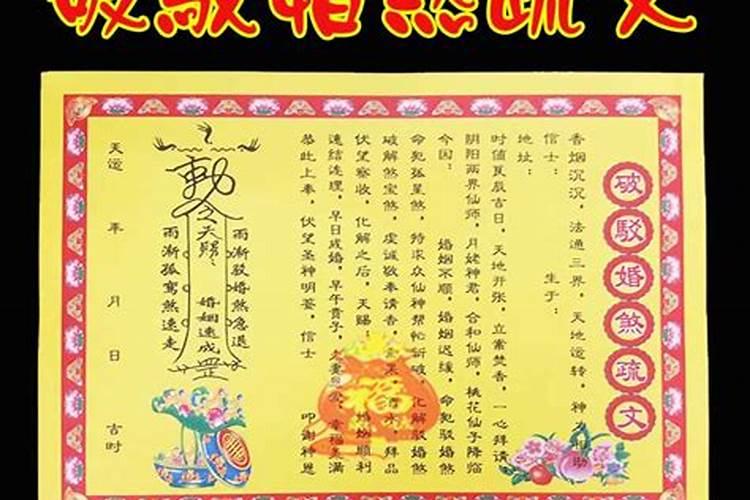 破駁婚煞疏文
破駁婚煞疏文
香烟沉沉，法通三界，天地运转，神力相助
信士： 生于：
地址：
时值良辰吉日，天地开张，立案焚香，一心拜请
阴阳两界仙师，月姥神君，合和仙师，桃花仙子降临
今因： 婚姻不顺，婚姻迟缓，命犯驳婚煞
命犯孤星煞，特求众仙神帮忙祈破，化解驳婚煞
破解煞宝煞，虔诚敬奉请香，拜品
伏望察收，化解之后，天赐 婚姻顺利
速结连理，早日成婚，早午贵子，夫妻恩爱，幸福美满
恭此上奉，伏望圣神明鉴，信士 叩谢神恩
雨渐驳婚煞急退
勅令天赐 婚姻速成 罡
雨渐孤鸾煞速走
天运 年 月 日 吉时
福